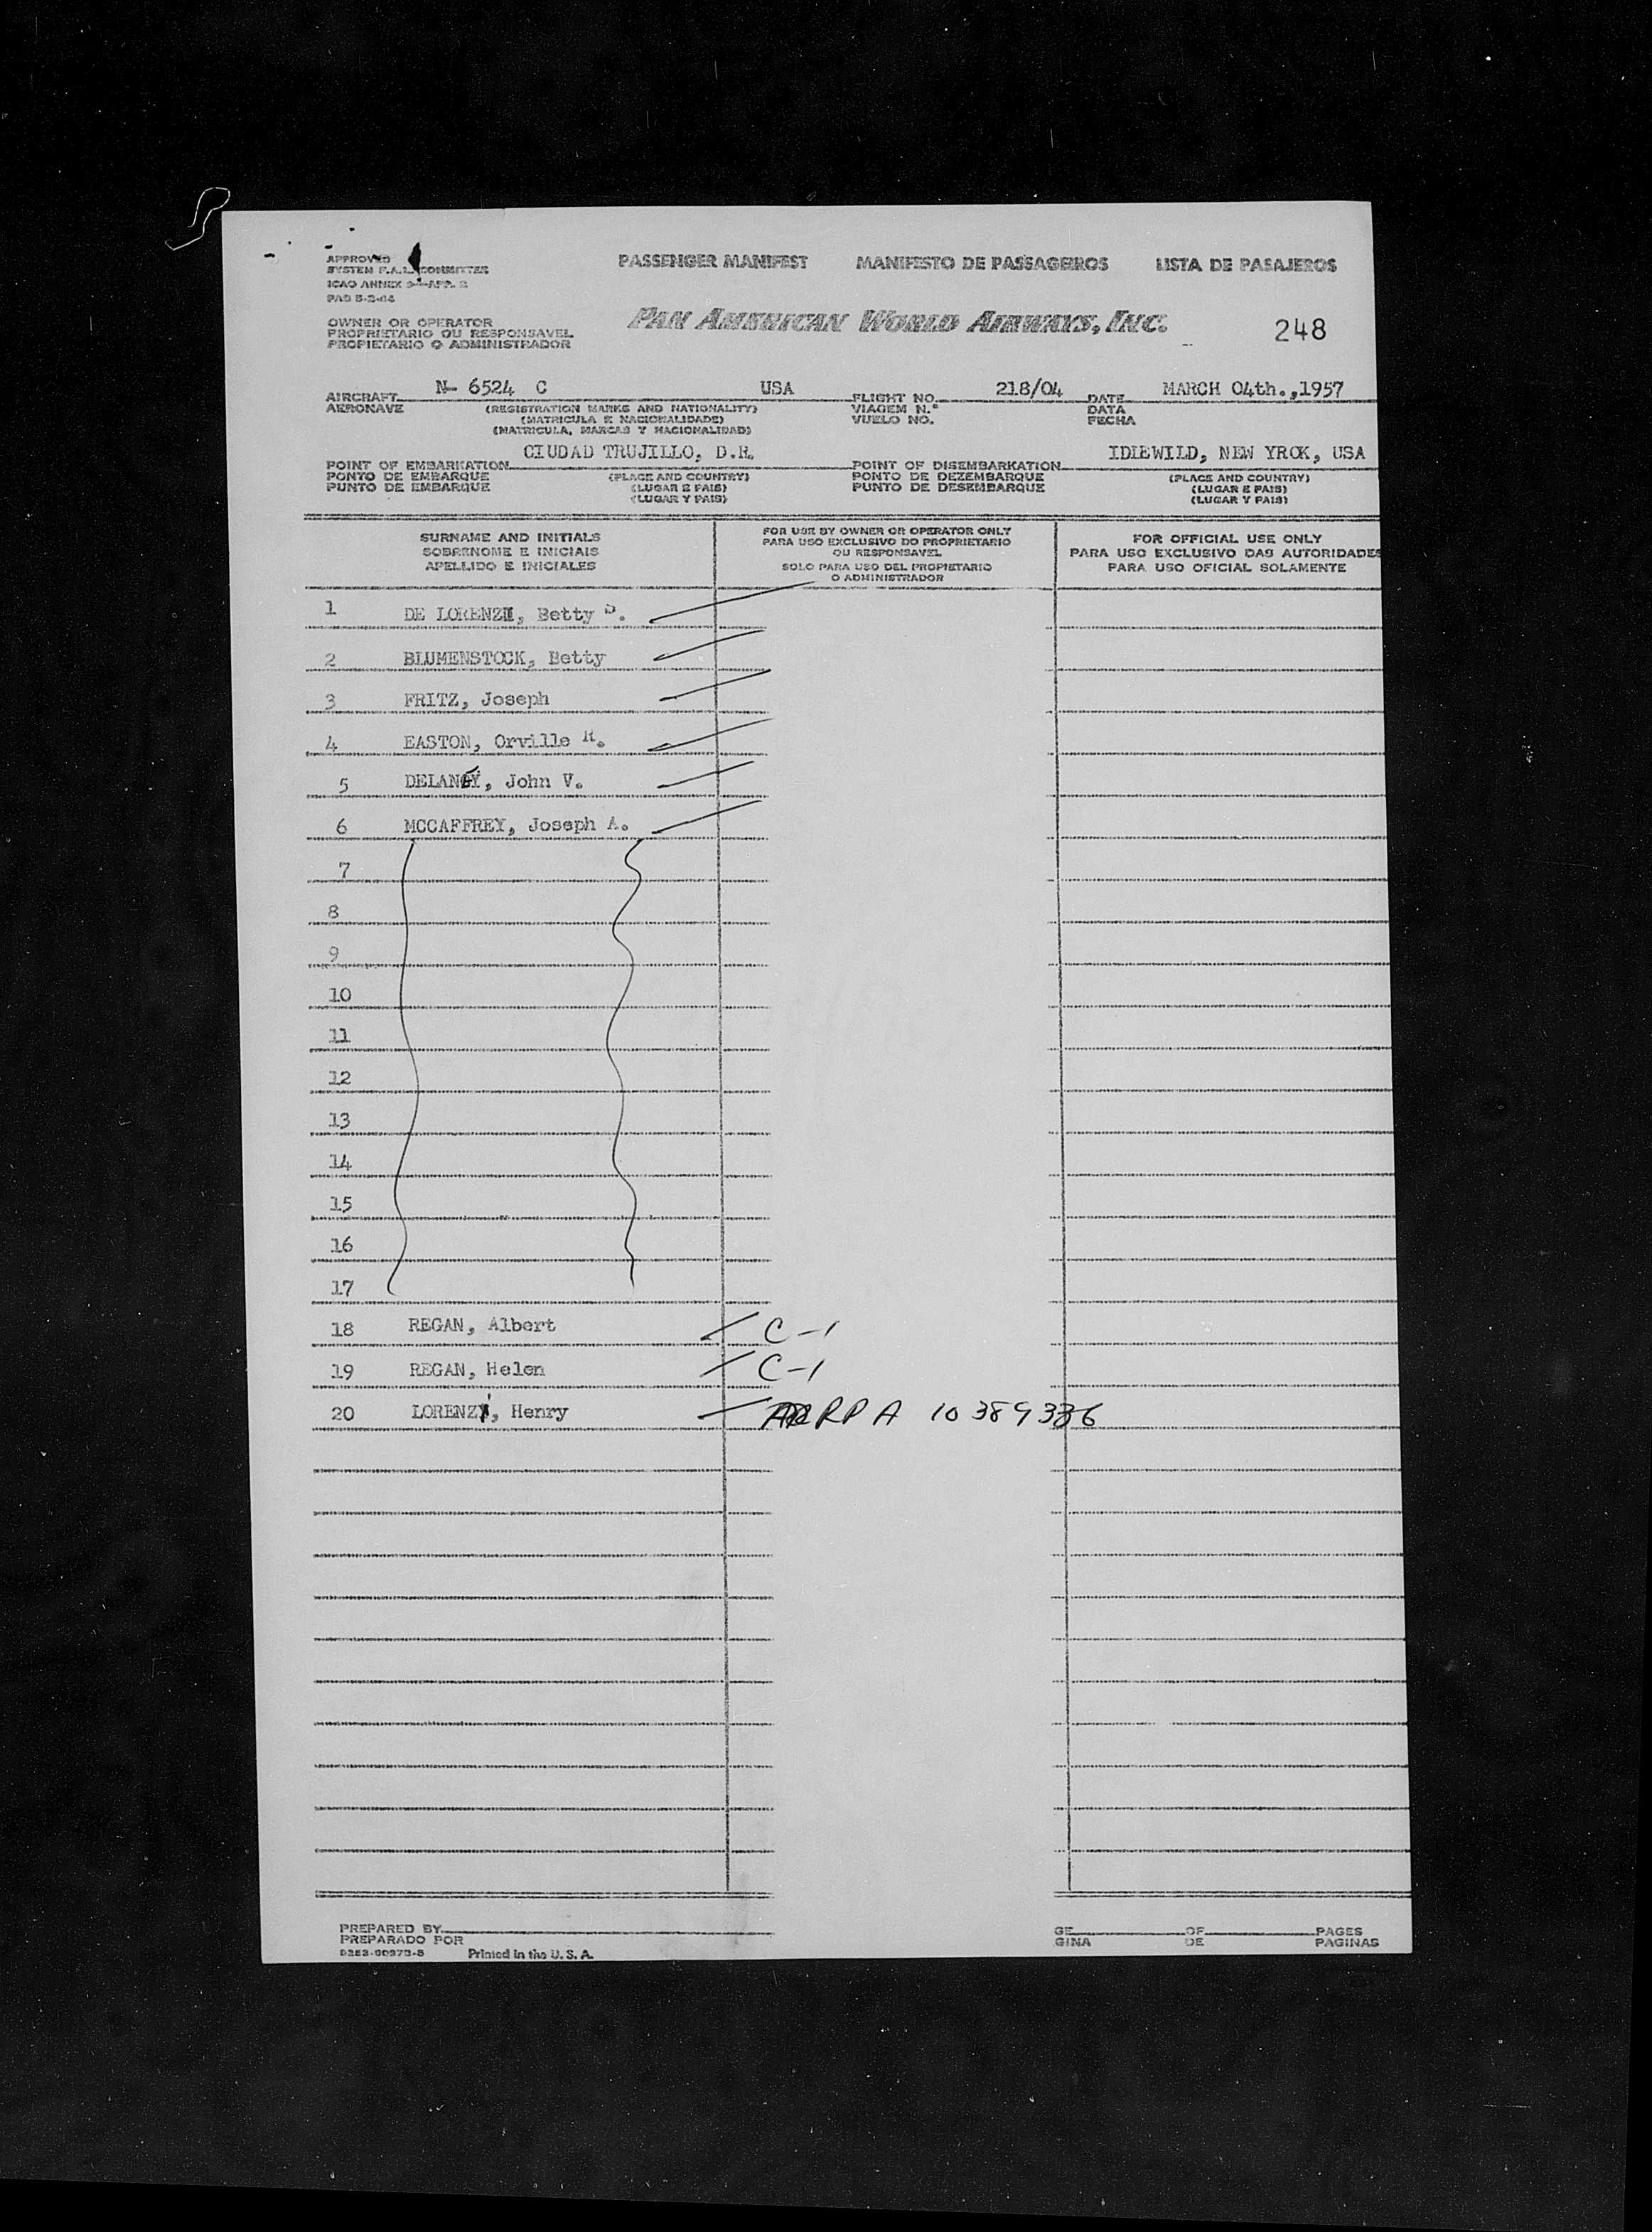 APPROVED
SYSTEM F.A.L. COMMITTEE
ICAO ANNEX 9—APP. 2
PAD 5-2-44
PASSENGER MANIFEST MANIFESTO DE PASSAGEIROS LISTA DE PASAJEROS
OWNER OR OPERATOR
PROPRIETARIO OU RESPONSAVEL
PROPIETARIO O ADMINISTRADOR
PAN AMERICAN WORLD AIRWAYS, INC.
248
AIRCRAFT N- 6524 C USA FLIGHT NO. 218/04 DATE MARCH 04th.,1957
AERONAVE (REGISTRATION MARKS AND NATIONALITY) VIAGEM N.º DATA
(MATRICULA E NACIONALIDADE) VUELO NO. FECHA
(MATRICULA, MARCAS Y NACIONALIDAD)
POINT OF EMBARKATION CIUDAD TRUJILLO, D.R. POINT OF DISEMBARKATION IDLEWILD, NEW YROK, USA
PONTO DE EMBARQUE (PLACE AND COUNTRY) PONTO DE DEZEMBARQUE (PLACE AND COUNTRY)
PUNTO DE EMBARQUE (LUGAR E PAIS) PUNTO DE DESEMBARQUE (LUGAR E PAIS)
(LUGAR Y PAIS) (LUGAR Y PAIS)
SURNAME AND INITIALS
SOBRENOME E INICIAIS
APELLIDO E INICIALES
FOR USE BY OWNER OR OPERATOR ONLY
PARA USO EXCLUSIVO DO PROPRIETARIO
OU RESPONSAVEL
SOLO PARA USO DEL PROPIETARIO
O ADMINISTRADOR
FOR OFFICIAL USE ONLY
PARA USO EXCLUSIVO DAS AUTORIDADES
PARA USO OFICIAL SOLAMENTE
1 DE LORENZI, Betty
2 BLUMENSTOCK, Betty
3 FRITZ, Joseph
4 EASTON, Orville H.
5 DELANEY, John V.
6 MCCAFFREY, Joseph A.
7
8
9
10
11
12
13
14
15
16
17
18 REGAN, Albert C-1
19 REGAN, Helen C-1
20 LORENZI, Henry RPA 10389336
PREPARED BY
PREPARADO POR
GE OF PAGES
GINA DE PAGINAS
Printed in the U.S.A.